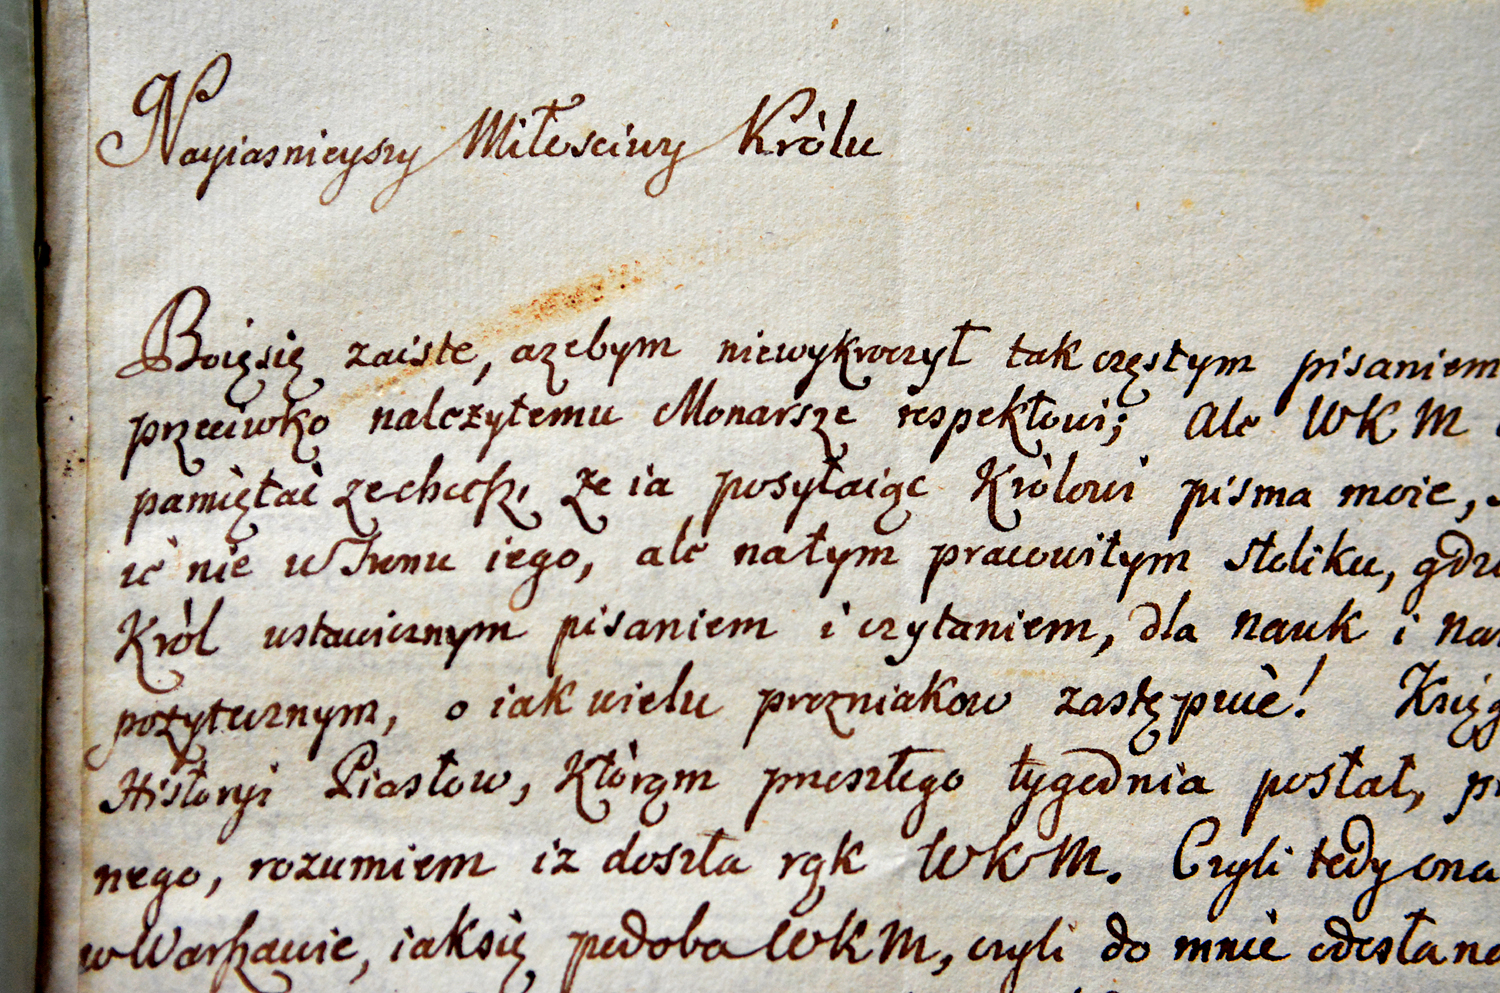 Nayiasnieyszy Miłosciwy Królu
Boięsię zaiste, azebym niewykroczył tak częstym pisaniem
przeciwko należytemu Monarsze respektowi; Ale WKM
pamiętać zechcesz, że ia posyłaiąc Królowi pisma moie,
ić nie u Tronu iego, ale natym pracowitym stoliku,
Król ustawicznym pisaniem i czytaniem, dla nauk i
pożytecznym, o iak wielu prozniakow zastępuie!
Historyi Piastow, którąm przeszłego tygodnia posłał,
nego, rozumiem iz doszła rąk WKM. Czyli tedy ona
w Warszawie, iaksię podoba WKM, czyli do mnie